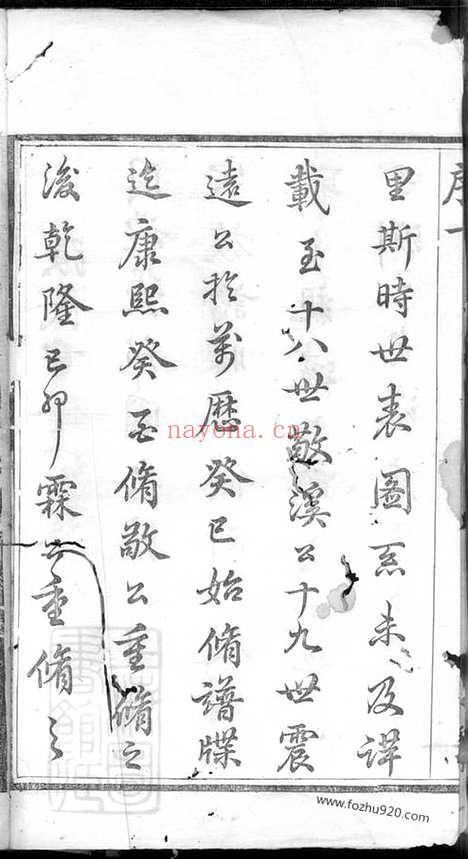 序一
里斯時世表圖系未及詳
載至十八世敬溪公十九世震
遠公於萬曆癸巳始脩譜牒
迄康熙癸脩敬公重脩之
後乾隆己卯霖公重脩之
nayona.cn
www.fozhu920.com